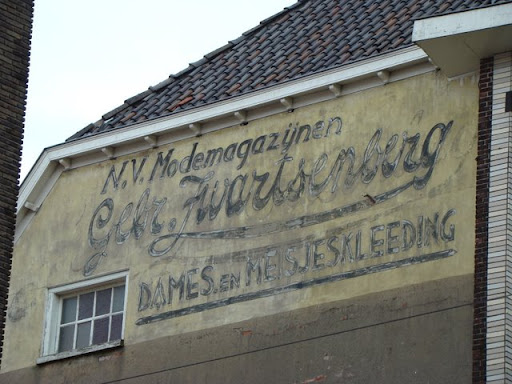 N.V. Modemagazijnen
Gebr. Zwartsenberg
DAMES. EN MEISJESKLEEDING